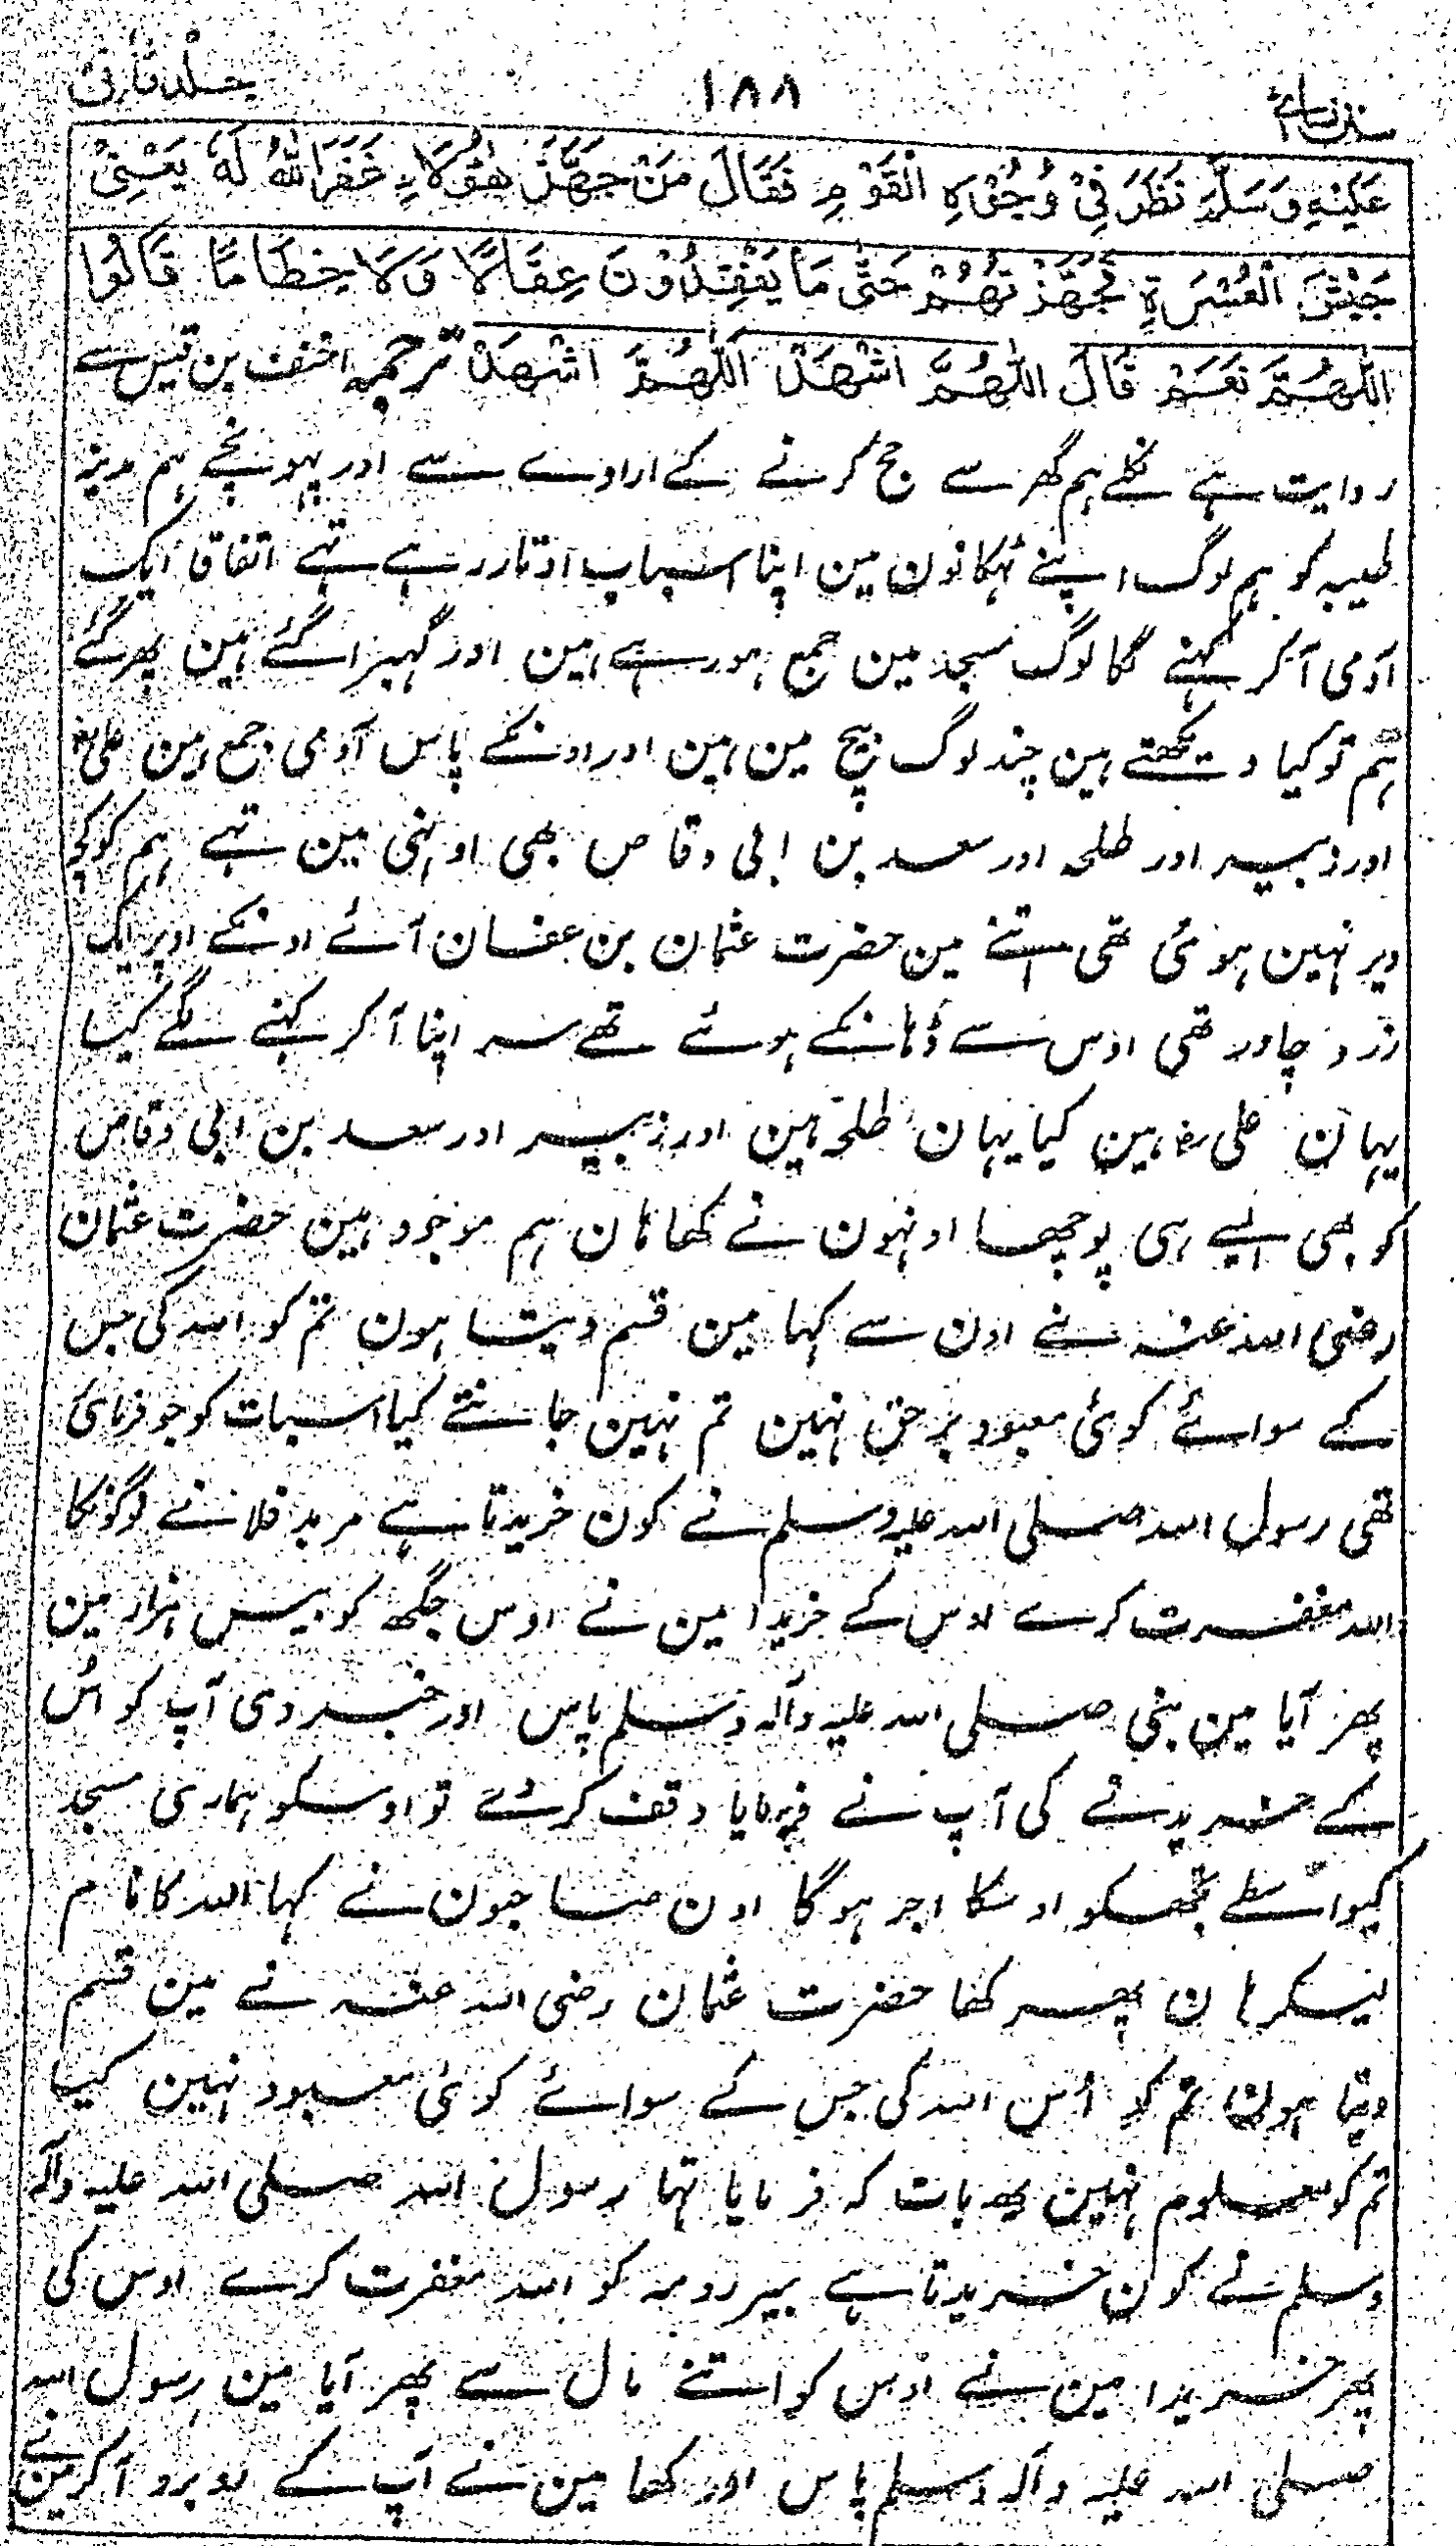 سنن نسائی ۱۸۸ جلد ثانی
عَلَيْهِ وَسَلَّمَ نَظَرَ فِيْ وُجُوْهِ الْقَوْمِ فَقَالَ مَنْ جَهَّزَ هٰؤُلَاءِ غَفَرَ اللّٰهُ لَهٗ يَعْنِيْ
جَيْشَ الْعُسْرَةِ فَجَهَّزْتُهُمْ حَتّٰى مَا يَفْقِدُوْنَ عِقَالًا وَلَا خِطَامًا قَالُوْا
اَللّٰهُمَّ نَعَمْ قَالَ اللّٰهُمَّ اشْهَدْ اَللّٰهُمَّ اشْهَدْ ترجمہ احنف بن قیس سے
روایت ہے نکلے ہم گھر سے حج کرنے کے ارادے سے اور پہونچے ہم مدینہ
طیبہ کو ہم لوگ اپنے ٹہکانون مین اپنا اسباب اوتار رہے تہے اتفاقا ایک
آدمی آکر کہنے لگا لوگ مسجد مین جمع ہو رہے ہین اور گہبرا گئے ہین پھر گئے
ہم تو کیا دیکھتے ہین چند لوگ بیچ مین ہین اور اونکے پاس آدمی جمع ہین علی رض
اور زبیر اور طلحہ اور سعد بن ابی وقاص بھی اونہی مین تہے ہم کو کچھ
دیر نہین ہوئی تھی اتنے مین حضرت عثمان بن عفان آئے اونکے اوپر ایک
زرد چادر تھی اوس سے ڈہانکے ہوئے تھے سر اپنا آکر کہنے لگے کیا
یہان علی رض ہین کیا یہان طلحہ ہین اور زبیر اور سعد بن ابی وقاص
کو بھی ایسے ہی پوچھا اونہون نے کھا ہان ہم موجود ہین حضرت عثمان
رضی اللہ عنہ نے اون سے کہا مین قسم دیتا ہون تم کو اللہ کی جس
کے سوائے کوئی معبود برحق نہین تم نہین جانتے کیا اسبات کو جو فرمائی
تھی رسول اللہ صلی اللہ علیہ وسلم نے کون خریدتا ہے مربد فلانے لوگونکا
اللہ مغفرت کرے اوس کے خریدا مین نے اوس جگھ کو بیس ہزار مین
پھر آیا مین نبی صلی اللہ علیہ وآلہ وسلم پاس اور خبر دی آپ کو اُس
کے خریدنے کی آپ نے فرمایا وقف کر دے تو اوسکو ہماری مسجد
کیواسطے تجھکو اوسکا اجر ہوگا اون صاحبون نے کہا اللہ کا نام
لیکر ہان پھر کھا حضرت عثمان رضی اللہ عنہ نے مین قسم
دیتا ہون تم کو اُس اللہ کی جس کے سوائے کوئی معبود نہین کیا
تم کو معلوم نہین یھ بات کہ فرمایا تہا رسول اللہ صلی اللہ علیہ وآلہ
وسلم نے کون خریدتا ہے بیر رومہ کو اللہ مغفرت کرے اوس کی
پھر خریدا مین نے اوس کو اتنے مال سے پھر آیا مین رسول اللہ
صلی اللہ علیہ وآلہ وسلم پاس اور کھا مین نے آپ کے روبرو آکر مین نے